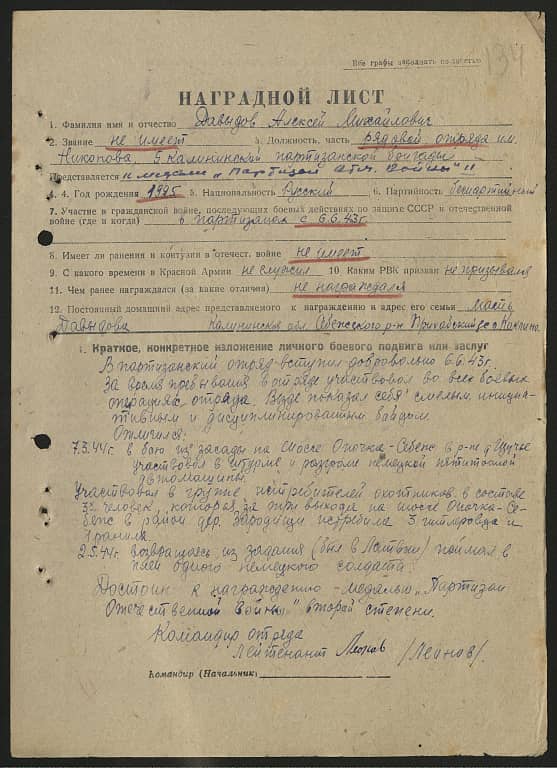 Все графы заполнять полностью
134
НАГРАДНОЙ ЛИСТ
1. Фамилия имя и отчество Давыдов Алексей Михайлович
2. Звание не имеет 3. Должность, часть рядовой отряда им.
Никонова, 5 Калининской партизанской бригады
Представляется к медали „Партизан Отеч. Войны"
4. 4. Год рождения 1925 5. Национальность Русский 6. Партийность беспартийный
7. Участие в гражданской войне, последующих боевых действиях по защите СССР и отечественной
войне (где и когда) в партизанах с 6.6.43г.
8. Имеет ли ранения и контузии в отечест. войне не имеет
9. С какого времени в Красной Армии не служил 10 Каким РВК призван не призывался
11. Чем ранее награждался (за какие отличия) не награждался
12. Постоянный домашний адрес представляемого к награждению и адрес его семьи Мать
Давыдова Калининская обл. Себежского р-н
1. Краткое, конкретное изложение личного боевого подвига или заслуг
В партизанский отряд вступил добровольно 6.6.43г.
За время пребывания в отряде участвовал во всех боевых
операциях отряда. Везде показал себя смелым, инициа-
тивным и дисциплинированным бойцом
Отличился:
7.3.44г. в бою из засады на шоссе Опочка-Себеж в р-не д. Щучье
участвовал в штурме и разгроме немецкой пятитонной
автомашины.
Участвовал в группе истребителей охотников в составе
3х человек, которая за три выхода на шоссе Опочка-Се-
беж в районе дер. Зародищи истребила 3 гитлеровца и
1 ранила.
2.5.44г. возвращаясь из задания (был в Латвии) поймал в
плен одного немецкого солдата.
Достоин к награждению - медалью „Партизан
Отечественной Войны" второй степени.
Командир отряда
Лейтенант
Командир (Начальник)